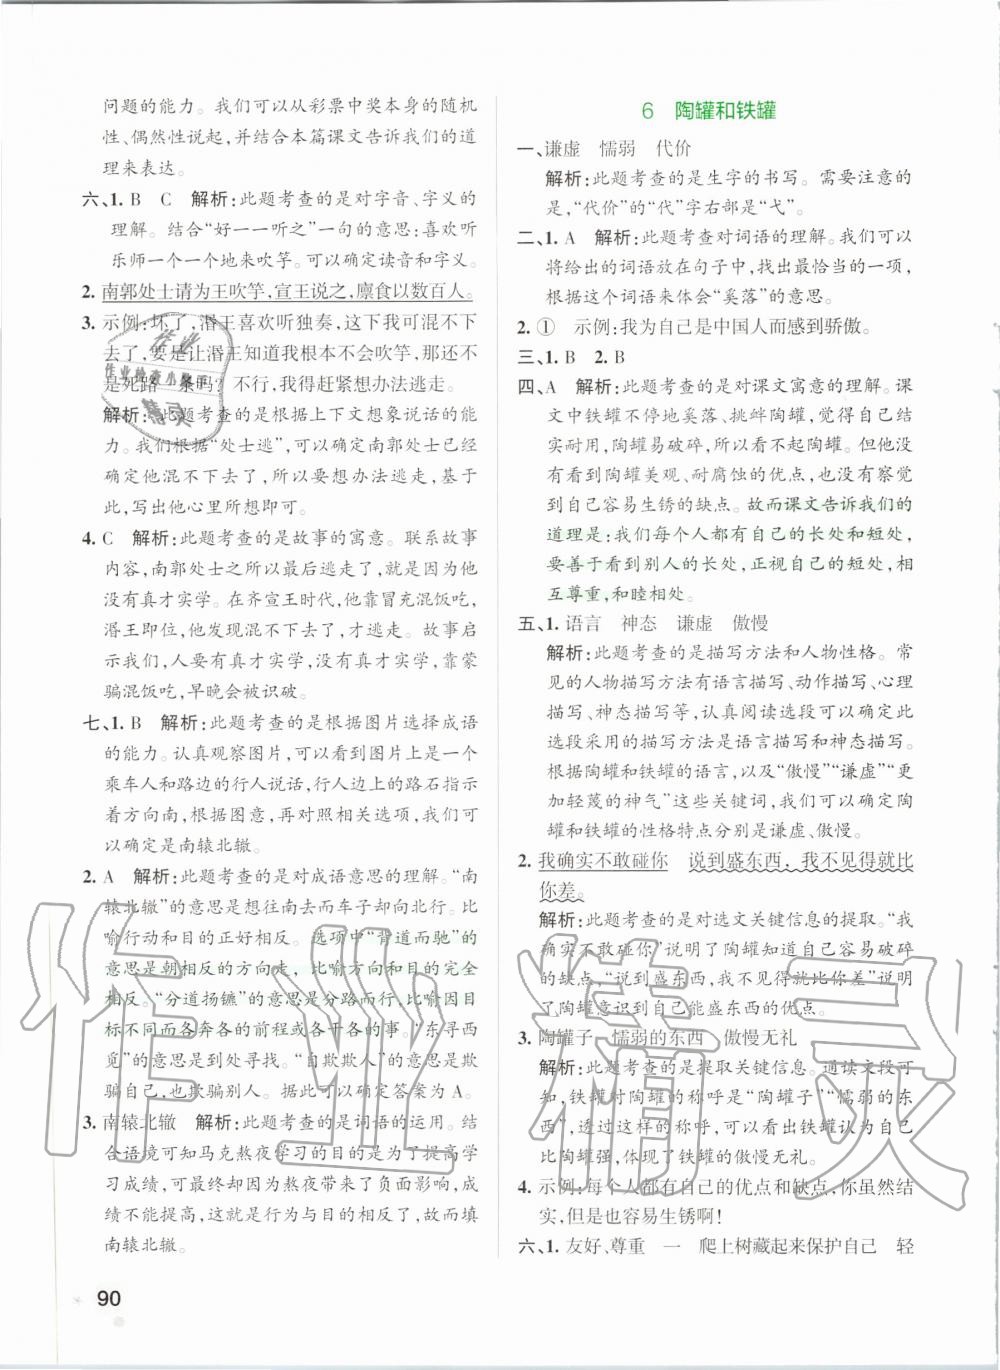 问题的能力。我们可以从彩票中奖本身的随机
性、偶然性说起,并结合本篇课文告诉我们的道
理来表达。
六、1. B C 解析:此题考查的是对字音、字义的
理解。结合“好一一听之”一句的意思:喜欢听
乐师一个一个地来吹竽。可以确定读音和字义。
2. 南郭处士请为王吹竽,宣王说之,廪食以数百人。
3. 示例:坏了,湣王喜欢听独奏,这下我可混不下
去了,要是让湣王知道我根本不会吹竽,那还不
是死路一条吗?不行,我得赶紧想办法逃走。
解析:此题考查的是根据上下文想象说话的能
力。我们根据“处士逃”,可以确定南郭处士已经
确定他混不下去了,所以要想办法逃走,基于
此,写出他心里所想即可。
4. C 解析:此题考查的是故事的寓意。联系故事
内容,南郭处士之所以最后逃走了,就是因为他
没有真才实学。在齐宣王时代,他靠冒充混饭吃,
湣王即位,他发现混不下去了,才逃走。故事启
示我们,人要有真才实学,否则就算一时能靠蒙
骗混饭吃,早晚会被识破。
七、1. B 解析:此题考查的是根据图片选择成语
的能力。认真观察图片,可以看到图片中是一个
乘车人和路边的行人说话,行人脚边的路石指示
着方向南,根据图意,再对照相关选项,我们可
以确定是南辕北辙。
2. A 解析:此题考查的是对成语意思的理解。“南
辕北辙”的意思是想往南去而车子却向北行。比
喻行动和目的正好相反。选项中“背道而驰”的
意思是朝相反的方向走。比喻方向和目的完全
相反。“分道扬镳”的意思是分路而行。比喻因目
标不同而各奔各的前程或各干各的事。“东寻西
觅”的意思是到处寻找。“自欺欺人”的意思是欺
骗自己,也欺骗别人。据此可以确定答案为 A。
3. 南辕北辙 解析:此题考查的是词语的运用。结
合语境可知马克熬夜学习的目的是为了提高学
习成绩,可最终却因为熬夜带来了负面影响,成
绩不能提高,这就是行为与目的相反了,故而填
南辕北辙。
90
6 陶罐和铁罐
一、谦虚 懦弱 代价
解析:此题考查的是生字的书写。需要注意的
是,“代价”的“代”字右部是“弋”。
二、1. A 解析:此题考查对词语的理解。我们可以
将给出的词语放在句子中,找出最恰当的一项,
根据这个词语来体会“奚落”的意思。
2. ① 示例:我为自己是中国人而感到骄傲。
三、1. B 2. B
四、A 解析:此题考查的是对课文寓意的理解。课
文中铁罐不停地奚落、挑衅陶罐,是觉得自己结
实耐用,陶罐易破碎,所以看不起陶罐。但他没
有看到陶罐美观、耐腐蚀的优点,也没有察觉
到自己容易生锈的缺点。故而课文告诉我们的
道理是:我们每个人都有自己的长处和短处,
要善于看到别人的长处,正视自己的短处,相
互尊重,和睦相处。
五、1. 语言 神态 谦虚 傲慢
解析:此题考查的是描写方法和人物性格。常
见的人物描写方法有语言描写、动作描写、心理
描写、神态描写等,认真阅读选段可以确定此
选段采用的描写方法是语言描写和神态描写。
根据陶罐和铁罐的语言,以及“傲慢”“谦虚”“更
加轻蔑的神气”这些关键词,我们可以确定陶
罐和铁罐的性格特点分别是谦虚、傲慢。
2. 我确实不敢碰你 说到盛东西,我不见得就比
你差。
解析:此题考查的是对选文关键信息的提取。“我
确实不敢碰你”说明了陶罐知道自己容易破碎
的缺点,“说到盛东西,我不见得就比你差”说明
了陶罐意识到自己能盛东西的优点。
3. 陶罐子 懦弱的东西 傲慢无礼
解析:此题考查的是提取关键信息。阅读文段可
知,铁罐对陶罐的称呼是“陶罐子”“懦弱的东
西”,透过这样的称呼,可以看出铁罐认为自己
比陶罐强,体现了铁罐的傲慢无礼。
4. 示例:每个人都有自己的优点和缺点,你虽然结
实,但是也容易生锈啊!
六、1. 友好、尊重 一 爬上树藏起来保护自己 轻